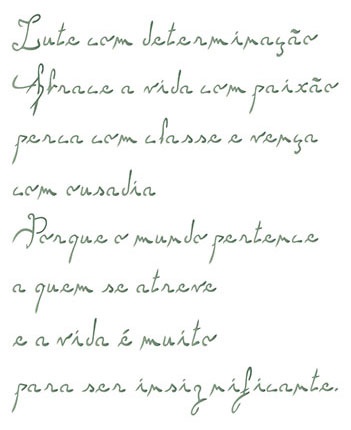 Lute com determinação
Abrace a vida com paixão
perca com classe e vença
com ousadia
Porque o mundo pertence
a quem se atreve
e a vida é muito
para ser insignificante.